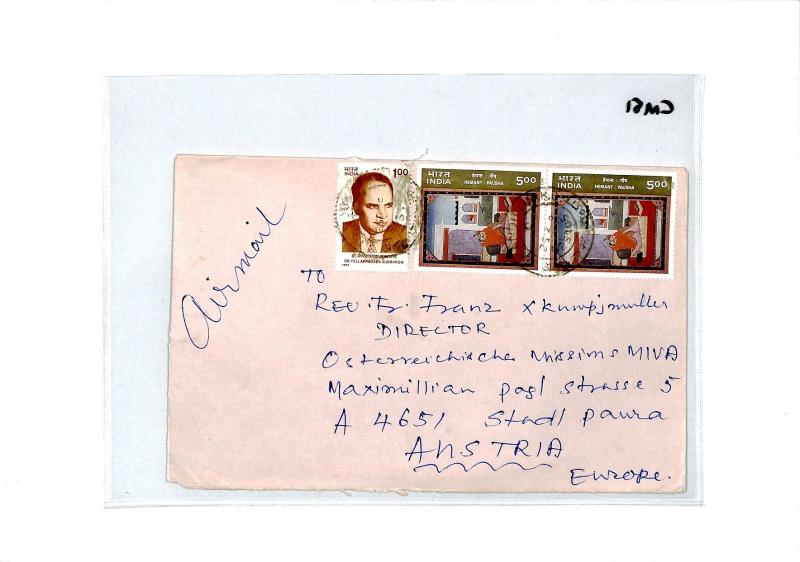 CM51
भारत
INDIA
1.00
डॉ. येल्लाप्रगडा सुब्बाराव
DR. YELLAPRAGADA SUBBAROW
भारत हेमन्त : पौष
INDIA HEMANT : PAUSHA 5.00
भारत हेमन्त : पौष
INDIA HEMANT : PAUSHA 5.00
Airmail
TO
Rev. Fr. Franz X Kumpjmuller
DIRECTOR
Osterreichische Missims MIVA
Maximillian pagl strasse 5
A 4651 Stadl paura
AUSTRIA
Europe.